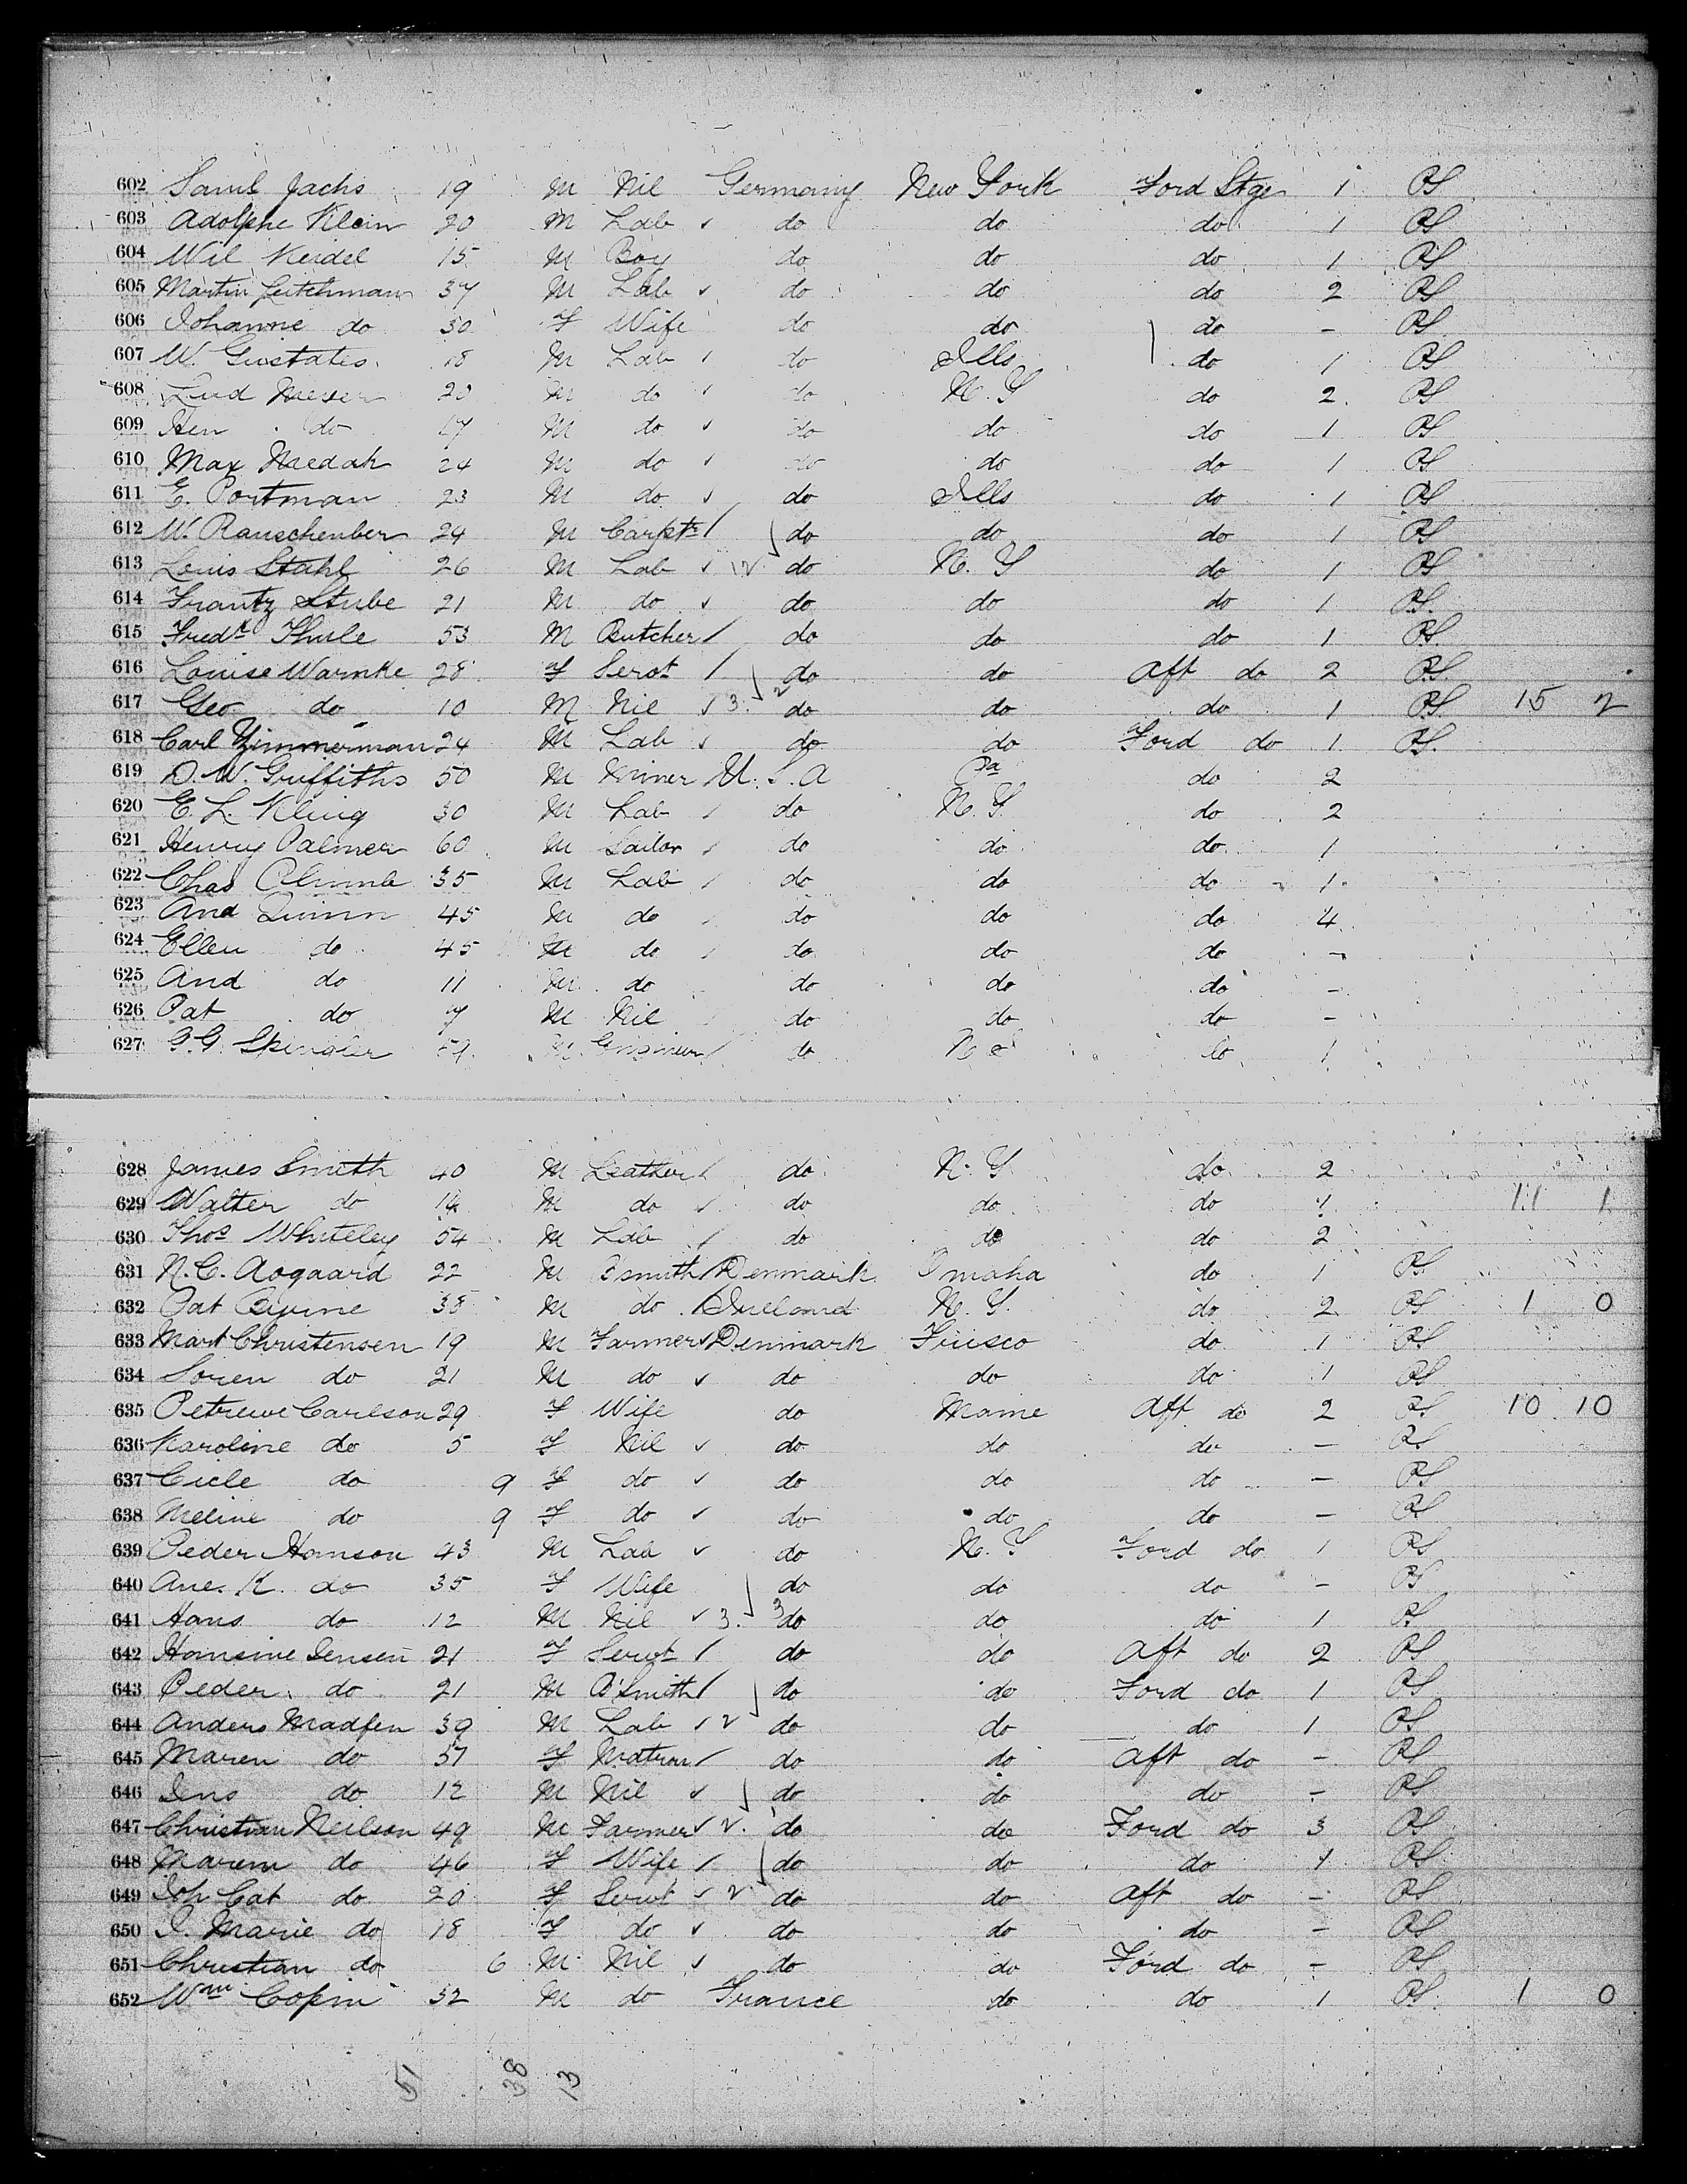 602 Saml Jachs 19 M Nil Germany New York Ford Stge 1 PS
603 Adolphe Klein 20 M Lab do do do 1 PS
604 Wil Keidel 15 M Boy do do do 1 PS
605 Martin 37 M Lab do do do 2 PS
606 Johanne do 30 F Wife do do do - PS
607 W. Gustates 18 M Lab do Ills do 1 PS
608 Lud Meyer 20 M do do N.Y do 2 PS
609 Hen do 17 M do do do do 1 PS
610 Max Medak 24 M do do do do 1 PS
611 E. Portman 23 M do do Ills do 1 PS
612 W. Rauschenber 24 M Carptr do do do 1 PS
613 Louis Stahl 26 M Lab 2 do N.Y do 1 PS
614 Frantz Stube 21 M do do do do 1 PS
615 Fredk Thule 53 M Butcher do do do 1 PS
616 Louise Warnke 28 F Servt do do Aft do 2 PS
617 Geo do 10 M Nil 3 2 do do do 1 PS 15 2
618 Carl Zimmerman 24 M Lab do do Ford do 1 PS
619 D. W. Griffiths 50 M Miner U.S.A Pa do 2
620 E. L. Kling 30 M Lab do N.Y. do 2
621 Henry Palmer 60 M Sailor do do do 1
622 Chas 35 M Lab do do do 1
623 And Quinn 45 M do do do do 4
624 Ellen do 45 M do do do do -
625 And do 11 M do do do do -
626 Pat do 7 M Nil do do do -
627 Spindler M Engineer do do 1
628 James Smith 40 M Leather do N.Y. do 2
629 Walter do 14 M do do do do 1 11 1
630 Thos Whiteley 54 M Lab do do do 2
631 N. C. Aogaard 22 M Bsmith Denmark Omaha do 1 PS
632 Pat 38 M do Ireland N.Y. do 2 PS 1 0
633 Mart Christensen 19 M Farmer Denmark Frisco do 1 PS
634 Soren do 21 M do do do do 1 PS
635 Petrewe Carlson 29 F Wife do Maine Aft do 2 PS 10 10
636 Karoline do 5 F Nil do do do - PS
637 Cicle do 9 F do do do do - PS
638 Meline do 9 F do do do do - PS
639 Peder Hanson 43 M Lab do N.Y Ford do 1 PS
640 Ane. K. do 35 F Wife do do do - PS
641 Hans do 12 M Nil 3 3 do do do 1 PS
642 Hansine Jensen 21 F Servt do do Aft do 2 PS
643 Peder do 21 M B'Smith do do Ford do 1 PS
644 Anders Madsen 39 M Lab 2 do do do 1 PS
645 Maren do 57 F Matron do do Aft do - PS
646 Jens do 12 M Nil do do do - PS
647 Christian Neilson 49 M Farmer 2 do do Ford do 3 PS
648 Maren do 46 F Wife do do do 1 PS
649 Joh Cat do 20 F Servt 2 do do Aft do - PS
650 I. Marie do 18 F do do do do - PS
651 Christian do 6 M Nil do do Ford do - PS
652 Wm Copin 32 M do France do do 1 PS 1 0
51 38 13